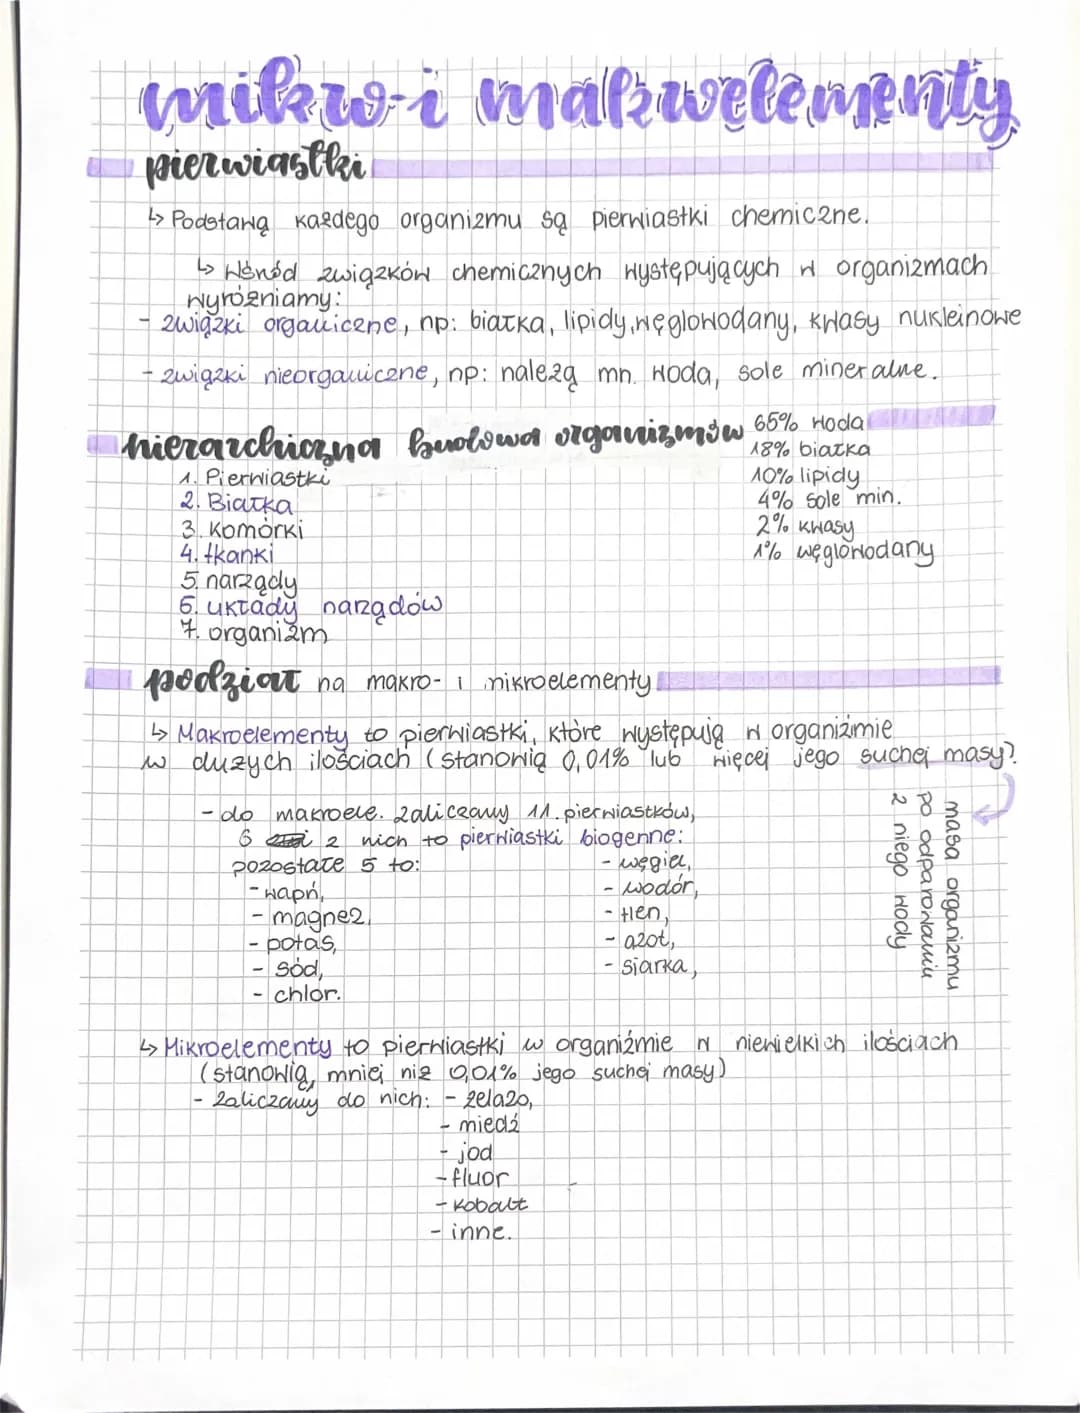 mikro-i makroelementy
pierwiastki
↳ Podstawą każdego organizmu są pierwiastki chemiczne.
↳ Wśród związków chemicznych występujących w organizmach
wyróżniamy:
- związki organiczne, np: białka, lipidy, węglowodany, kwasy nukleinowe
- związki nieorganiczne, np: należą mn. woda, sole mineralne.
hierarchiczna budowa organizmów
1. Pierwiastki
2. Białka
3. Komórki
4. tkanki
5. narządy
6. układy narządów
7. organizm
65% woda
18% białka
10% lipidy
4% sole min.
2% kwasy
1% węglowodany
podział na makro- i mikroelementy
↳ Makroelementy to pierwiastki, które występują w organiźmie
w dużych ilościach (stanowią 0,01% lub więcej jego suchej masy?
masa organizmu
po odparowaniu
z niego wody
- do makroele. zaliczamy 11. pierwiastków,
6 z nich to pierwiastki biogenne:
- węgiel,
- wodór,
- tlen,
- azot,
- siarka,
pozostałe 5 to:
- wapń,
- magnez,
- potas,
- sód,
- chlor.
↳ Mikroelementy to pierwiastki w organiźmie w niewielkich ilościach
(stanowią, mniej niż 0,01% jego suchej masy)
- zaliczamy do nich: - żelazo,
- miedź
- jod
- fluor
- kobalt
- inne.